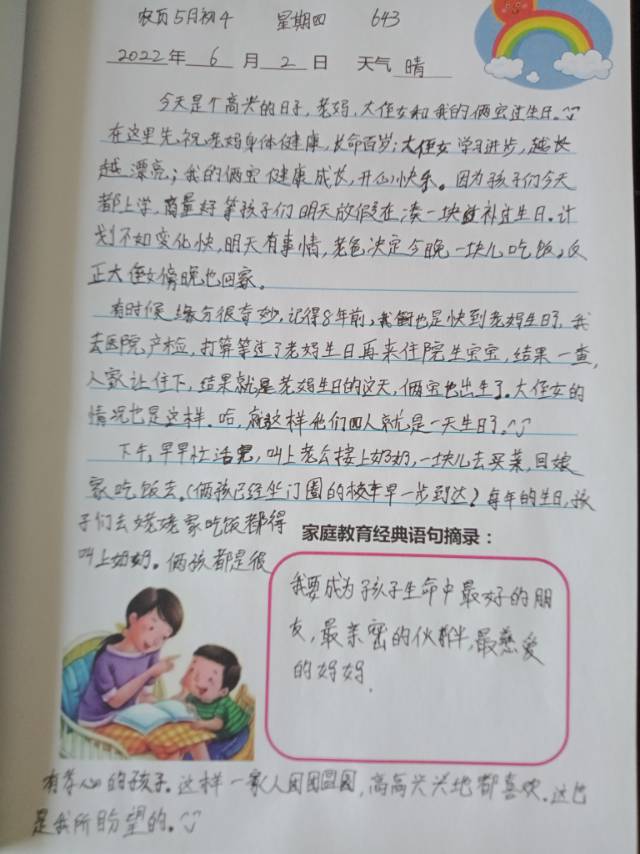 农历5月初4 星期四 643
2022年 6 月 2 日 天气 晴
今天是个高兴的日子,老妈,大侄女和我的俩宝过生日。
在这里先祝老妈身体健康,长命百岁;大侄女学习进步,越长
越漂亮;我的俩宝健康成长,开心快乐。因为孩子们今天
都上学,商量好等孩子们明天放假在凑一块过补过生日。计
划不如变化快,明天有事情,老爸决定今晚一块儿吃饭,反
正大侄女傍晚也回家。
有时候缘分很奇妙,记得8年前,也是快到老妈生日了,我
去医院产检,打算等过了老妈生日再来住院生宝宝,结果一查,
人家让住下,结果就是老妈生日的这天,俩宝也出生了。大侄女的
情况也是这样。哈,就这样他们四人就是一天生日了。
下午,早早忙活完,叫上老公接上奶奶,一块儿去买菜,回娘
家吃饭去。(俩孩已经坐订园的校车早一步到达)每年的生日,孩
子们去姥姥家吃饭都得
叫上奶奶。俩孩都是很
家庭教育经典语句摘录:
我要成为孩子生命中最好的朋
友,最亲密的伙伴,最慈爱
的妈妈.
有孝心的孩子。这样一家人团团圆圆,高高兴兴地都喜欢。这也
是我所盼望的。